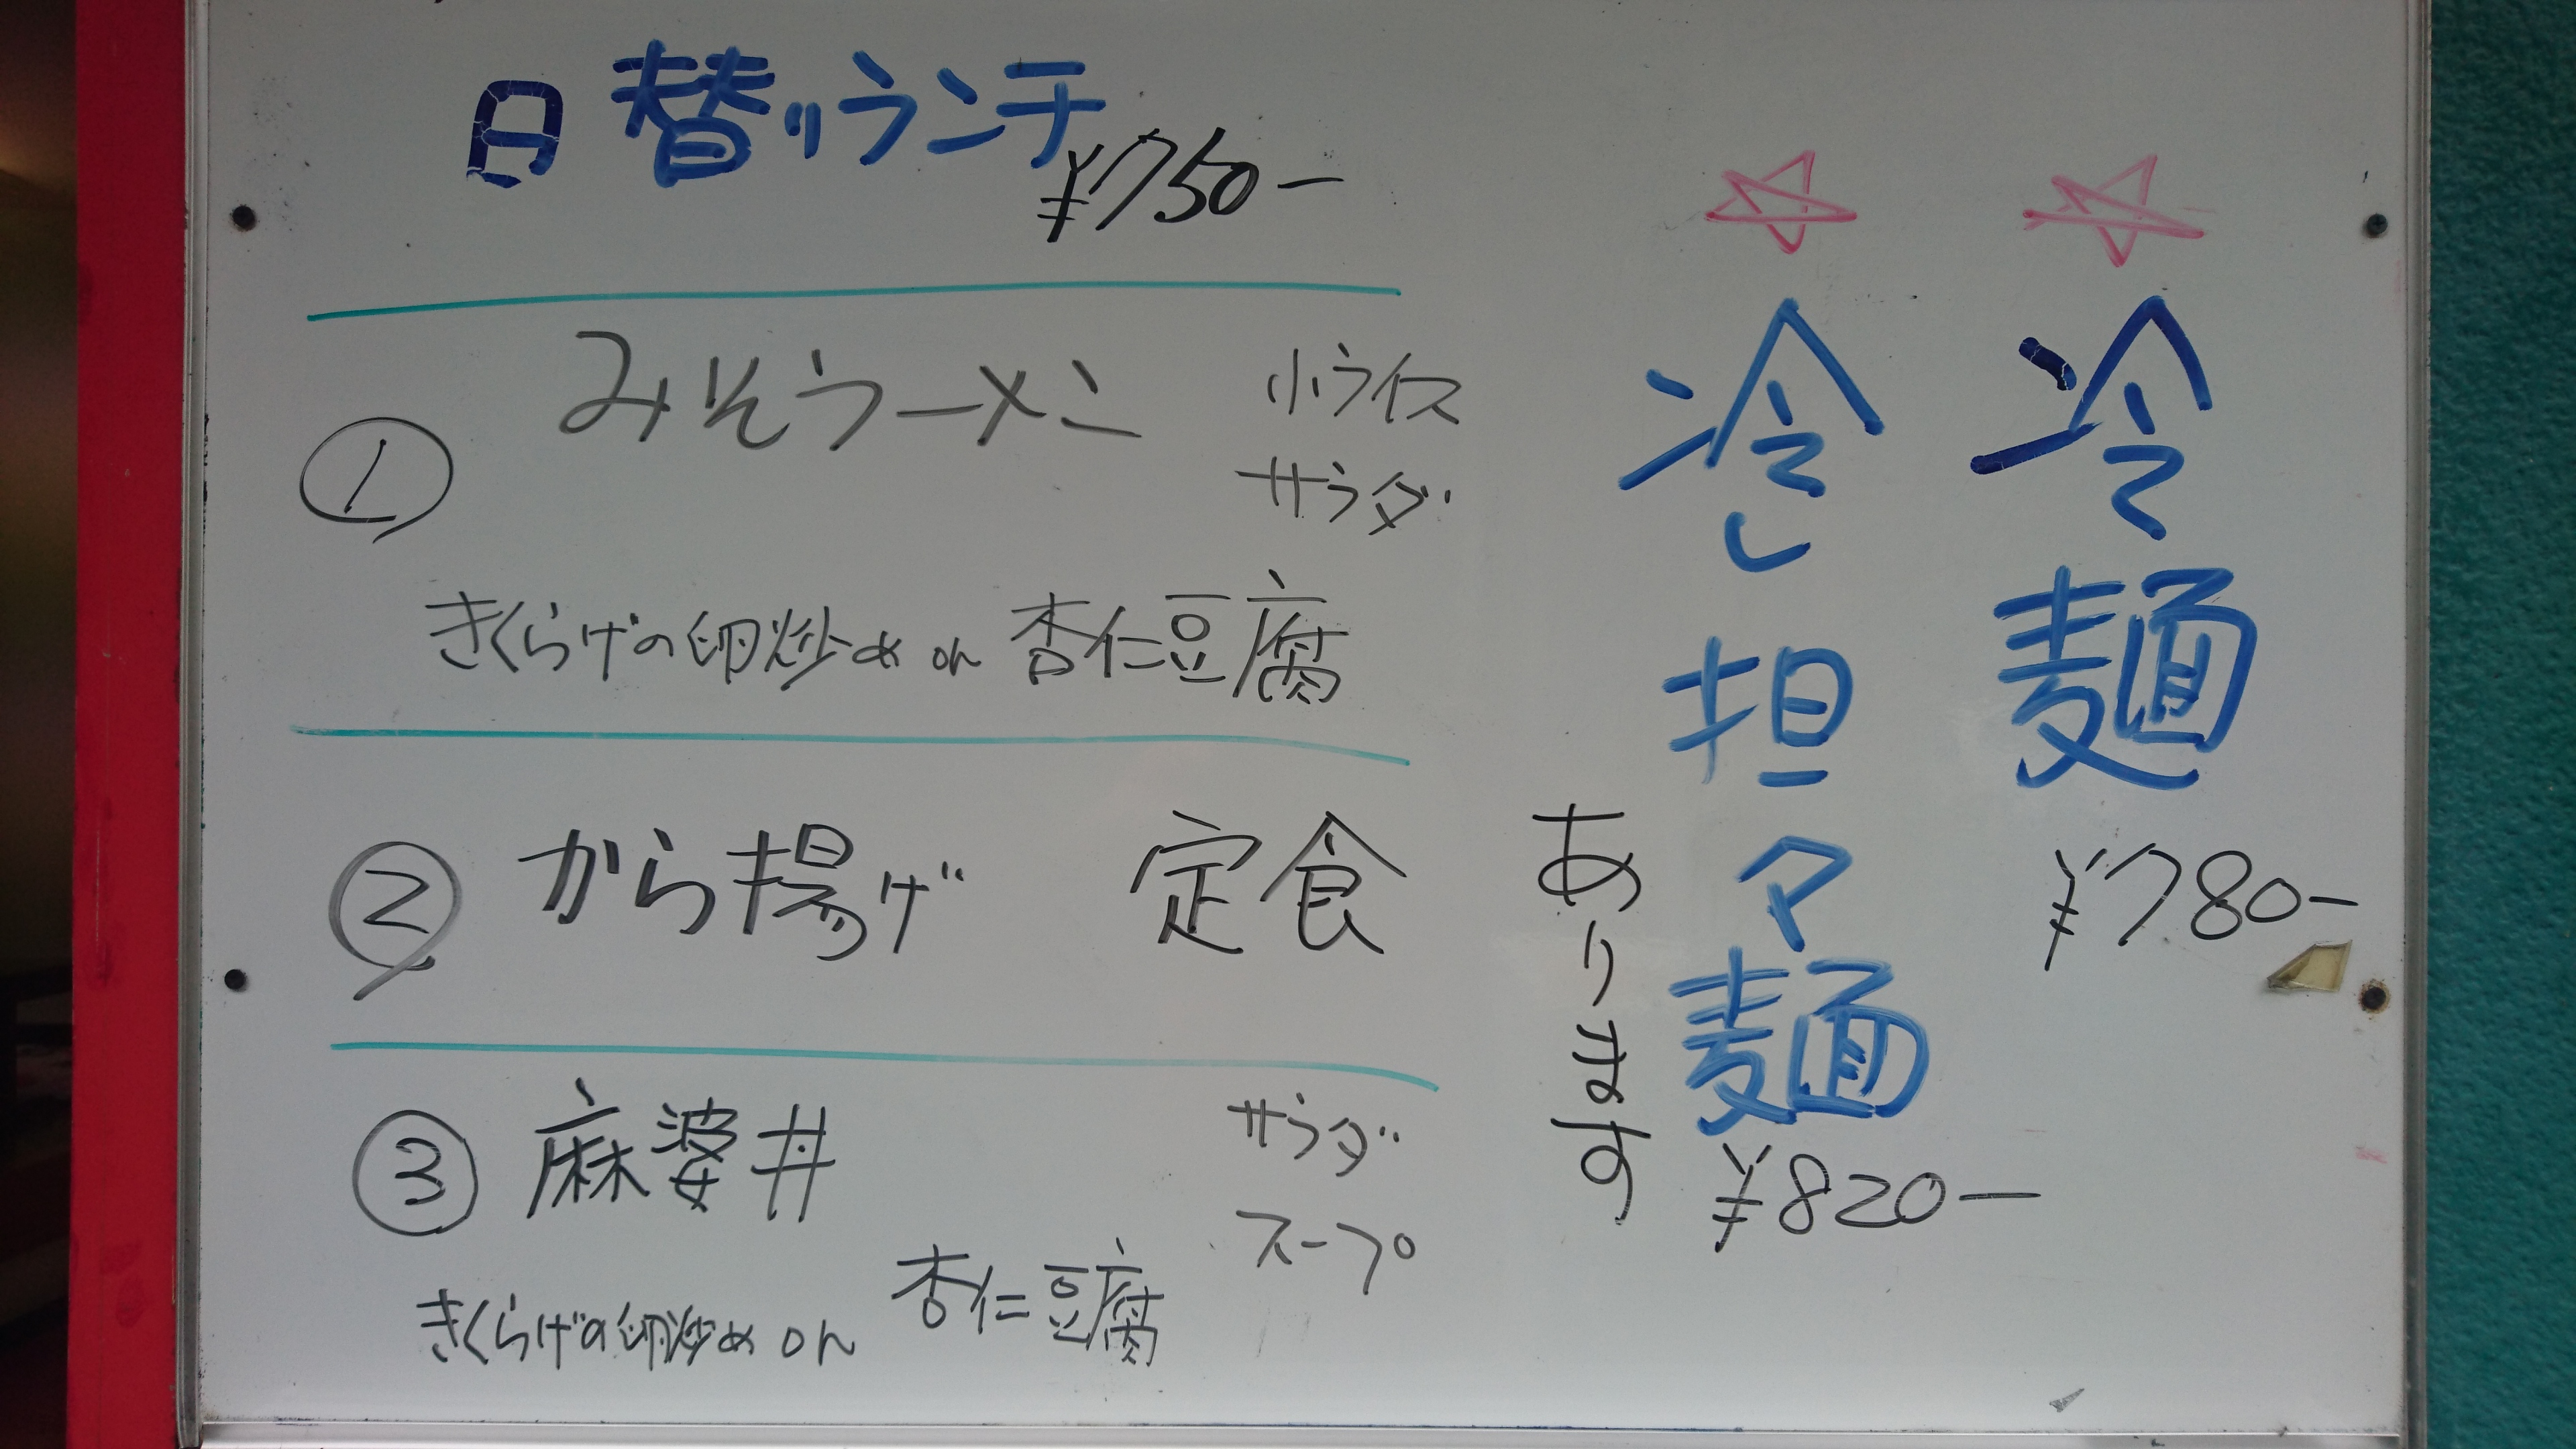 日替りランチ
¥750-
① みそラーメン 小ライス
サラダ
きくらげの卵炒め on 杏仁豆腐
② から揚げ 定食
③ 麻婆丼 サラダ
スープ
きくらげの卵炒め on 杏仁豆腐
☆冷麺
¥780-
☆冷し担々麺
¥820-
あります